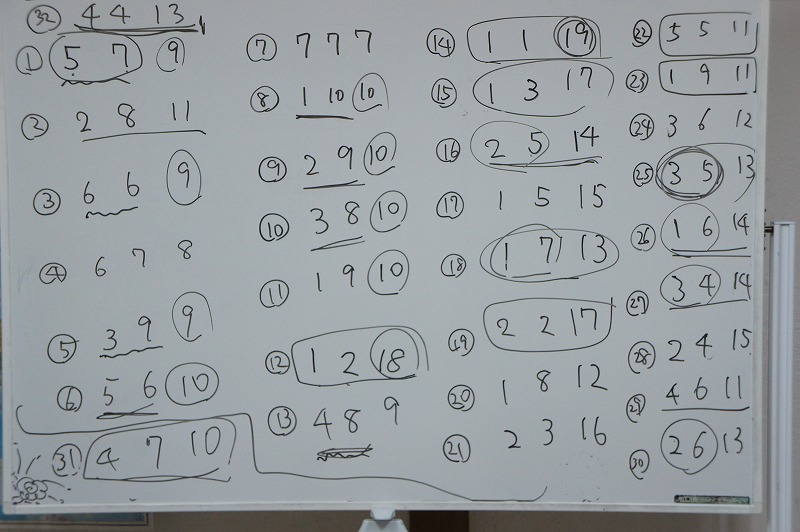 ㉜ 4 4 13
① 5 7 9
② 2 8 11
③ 6 6 9
④ 6 7 8
⑤ 3 9 9
⑥ 5 6 10
㉛ 4 7 10
⑦ 7 7 7
⑧ 1 10 10
⑨ 2 9 10
⑩ 3 8 10
⑪ 1 9 10
⑫ 1 2 18
⑬ 4 8 9
⑭ 1 1 19
⑮ 1 3 17
⑯ 2 5 14
⑰ 1 5 15
⑱ 1 7 13
⑲ 2 2 17
⑳ 1 8 12
㉑ 2 3 16
㉒ 5 5 11
㉓ 1 9 11
㉔ 3 6 12
㉕ 3 5 13
㉖ 1 6 14
㉗ 3 4 14
㉘ 2 4 15
㉙ 4 6 11
㉚ 2 6 13